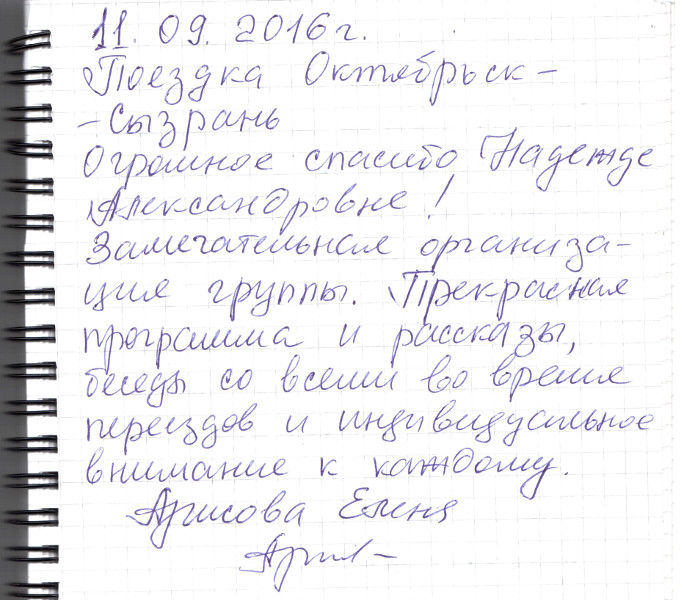 11. 09. 2016 г.
Поездка Октябрьск -
- Сызрань
Огромное спасибо Надежде
Александровне!
Замечательная организа-
ция группы. Прекрасная
программа и рассказы,
беседы со всеми во время
переездов и индивидуальное
внимание к каждому.
Елена